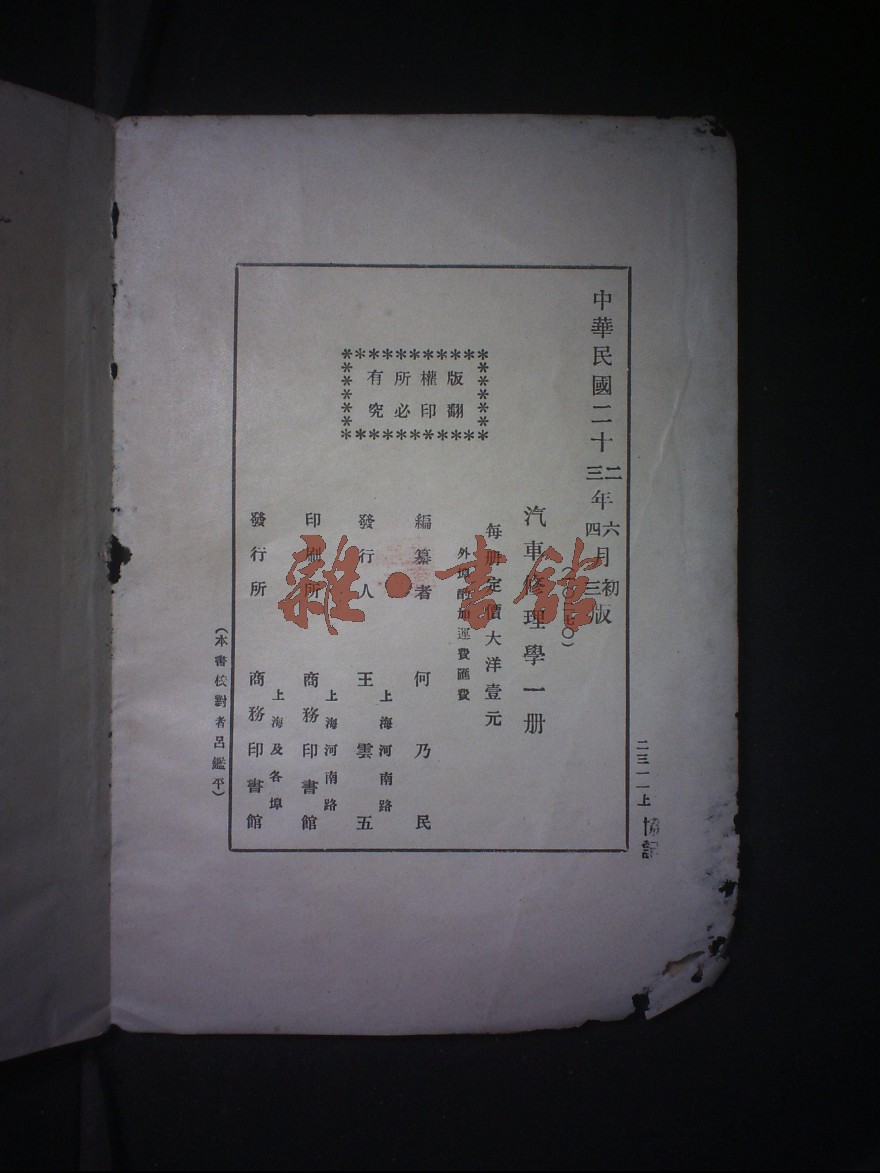 中華民國二十二年六月初版
三年四月三版
汽車修理學一册
每册定價大洋壹元
外埠酌加運費匯費
版權所有
翻印必究
編纂者 何乃民
上海河南路
發行人 王雲五
上海河南路
印刷所 商務印書館
上海及各埠
發行所 商務印書館
(本書校對者呂鑑平)
二三一一上
雜·書館